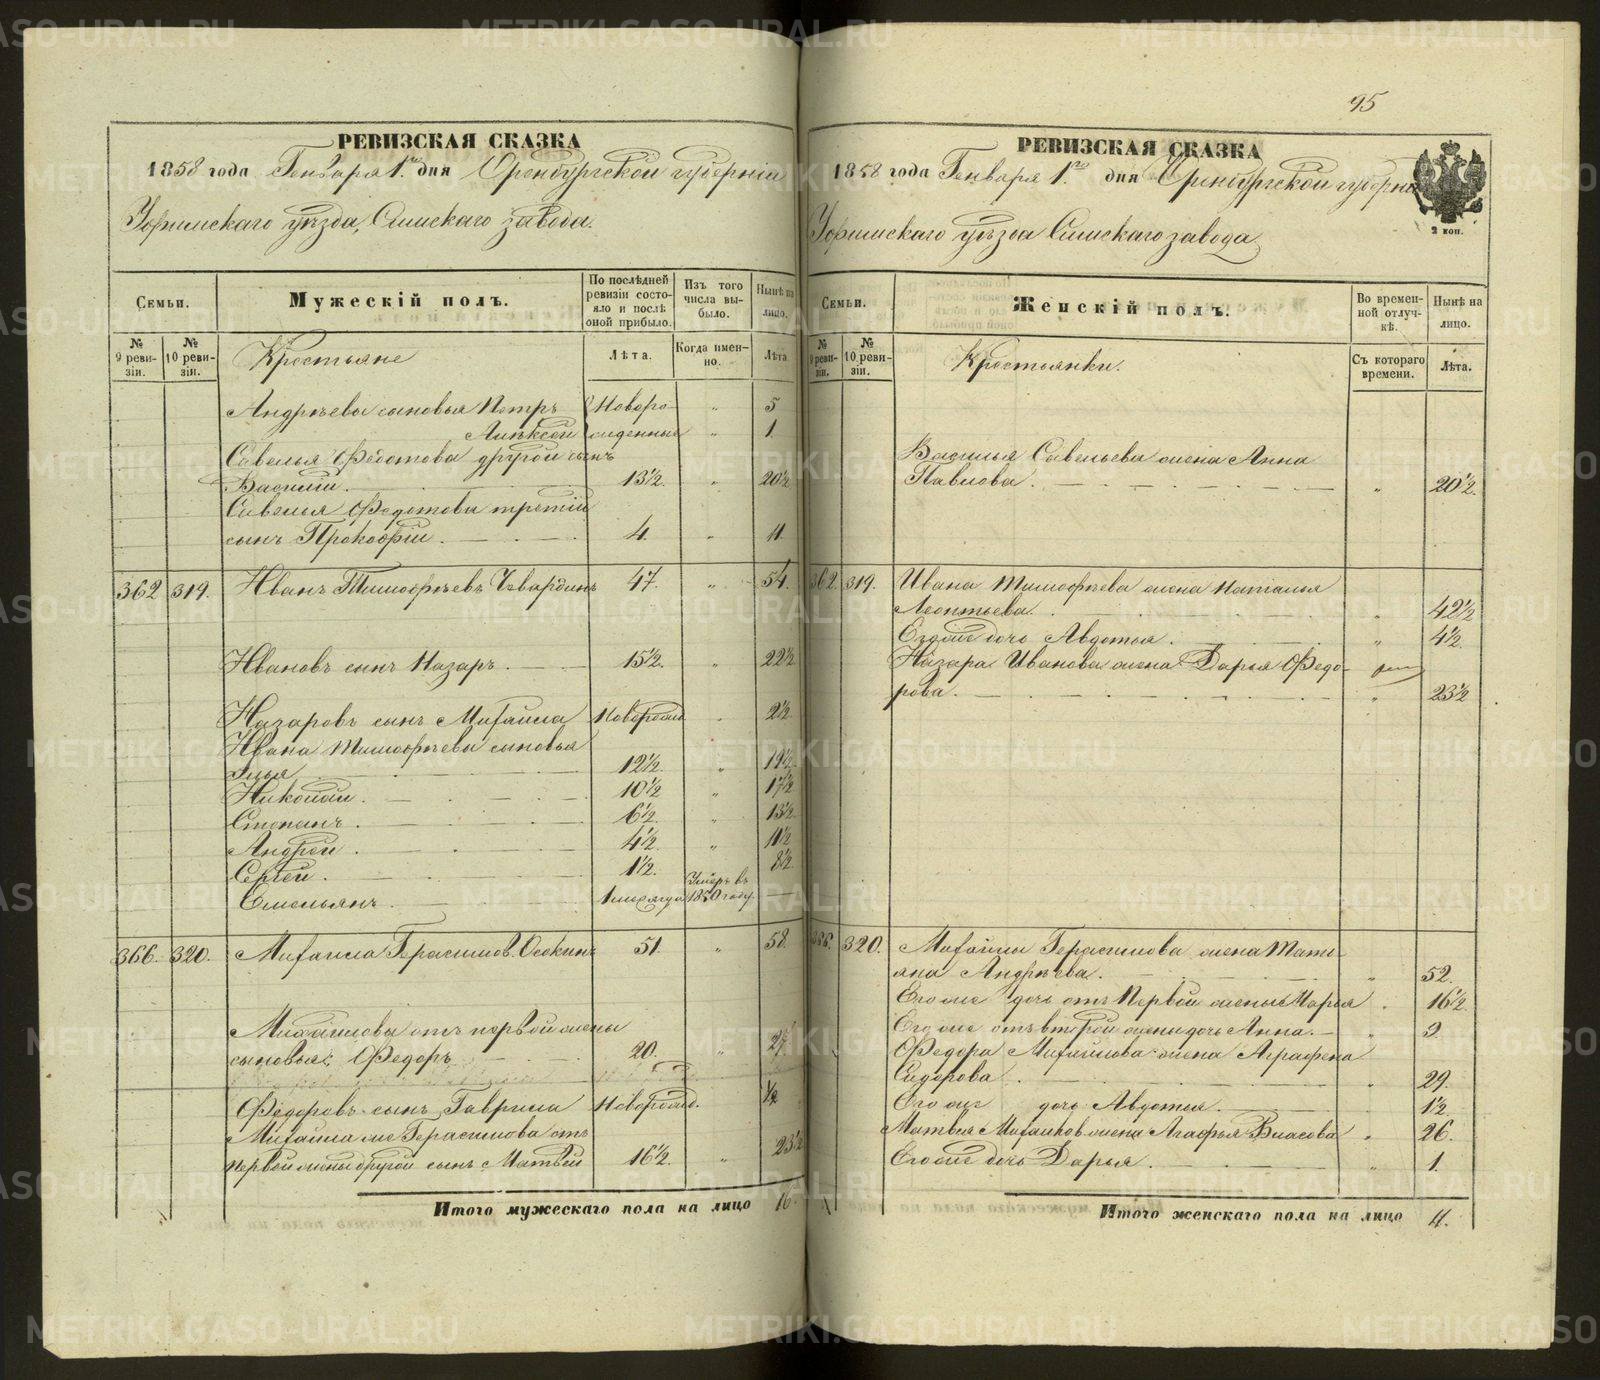 95
РЕВИЗСКАЯ СКАЗКА
1858 года Генваря 1го дня Оренбургской губернiи
Уфимскаго уѣзда, Симскаго завода.
Семьи.
Мужескій полъ.
По послѣдней ревизіи состояло и послѣ оной прибыло.
Изъ того числа выбыло.
Нынѣ на лицо.
№ 9 ревизіи.
№ 10 ревизіи.
Крестьяне
Лѣта.
Когда именно.
Лѣта.
Андрѣевы сыновья Петръ Новоро- „ 5
Алѣксѣй жденные „ 1
Савелья Федотова другой сынъ
Василій. 13½. „ 20½
Савелья Федотова третій
сынъ Прокофій. 4. „ 11.
362 319. Иванъ Тимофѣевъ Чевардинъ 47. „ 54.
Ивановъ сынъ Назаръ. 15½. „ 22½
Назаровъ сынъ Михаила Новорожд. „ 2½
Ивана Тимофѣева сыновья
Илья 12½. „ 19½
Николай. 10½ „ 17½
Степанъ. 6½. „ 13½
Андрей. 4½. „ 11½
Сергей. 1½. 8½
Емельянъ. 1 месяца Умеръ въ 1850 году.
366. 320. Михаила Герасимов. Осокинъ 51. „ 58.
Михайловы отъ первой жены
сыновья: Федоръ 20. „ 27.
Федоровъ сынъ Гаврила Новорожд. ½
Михаила же Герасимова отъ
первой жены другой сынъ Матвей 16½. „ 23½
Итого мужескаго пола на лицо 16.
РЕВИЗСКАЯ СКАЗКА
1858 года Генваря 1го дня Оренбургской губерніи
Уфимскаго уѣзда Симскаго завода
2 коп.
Семьи.
Женскій полъ.
Во временной отлучкѣ.
Нынѣ на лицо.
№ 9 ревизіи.
№ 10 ревизіи.
Крестьянки.
Съ котораго времени.
Лѣта.
Василья Савельева жена Анна
Павлова. „ 20½.
362. 319. Ивана Тимофѣева жена Наталья
Леонтьева. „ 42½
Его же дочь Авдотья. „ 4½.
Назара Иванова жена Дарья Федо-
рова. „ 23½
366. 320. Михайлы Герасимова жена Тать-
яна Андрѣева. „ 52.
Его же дочь отъ первой жены Марья „ 16½.
Его же отъ второй жены дочь Анна. „ 9.
Федора Михайлова жена Аграфена
Сидорова „ 29.
Его же дочь Авдотья. 1½.
Матвея Михайлова жена Агафья Власова „ 26.
Его же дочь Дарья. „ 1.
Итого женскаго пола на лицо 11.
METRIKI.GASO-URAL.RU